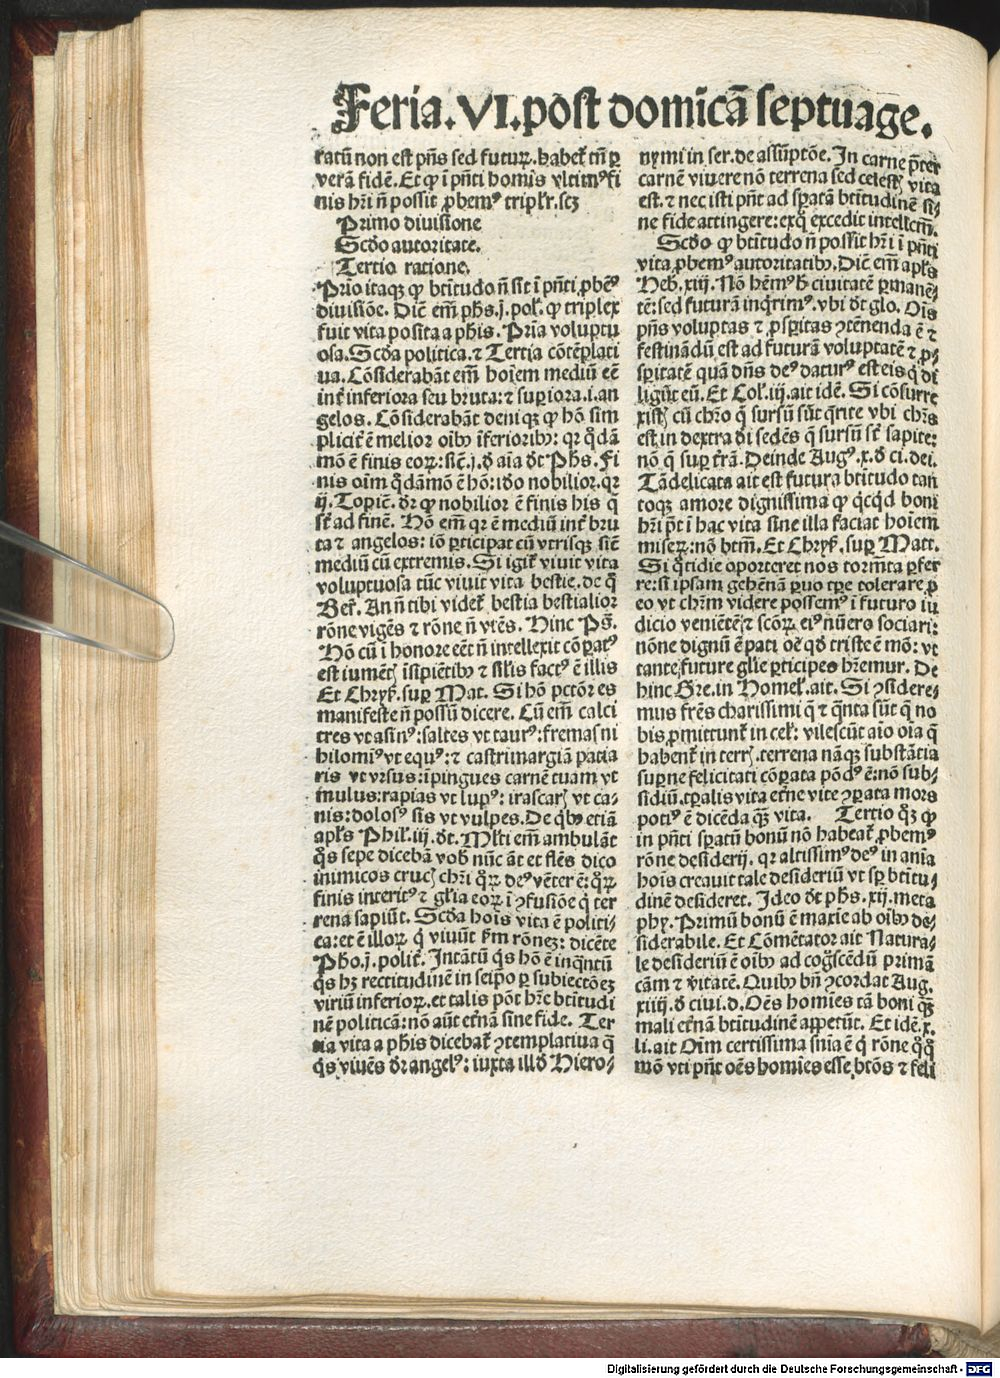 Feria.VI.post domīcā septuage.
ratū non est pn̄s sed futuꝝ. habet̄ tn̄ ꝑ
verā fidē. Et ꝙ ī pn̄ti homīs vltimꝰ fi
nis hr̄i n̄ possit ꝓbemꝰ triplr̄.scꝫ
Primo diuisione
Scd̄o autoritate.
Tertio ratione.
Prīo itaqꝫ ꝙ btītudo n̄ sit ī pn̄ti ꝓbeꝰ
diuisiōe. Dicē em̄ phs̄.j.pol̄. ꝙ triplex
fuit vita posita a phīs. Prīa voluptu
osa. Scd̄a politica. ⁊ Tertia cōtēplati
ua. Cōsiderabāt em̄ hoīem mediū eē
int̄ inferiora seu bruta: ⁊ supiora.i.an
gelos. Cōsiderabāt deniqꝫ ꝙ hō sim
plicit̄ ē melior oībꝰ īferioribꝰ: qꝛ qͦdā
mō ē finis eoꝝ: sic̄.j.đ aīa dt̄ Phs̄. Fi
nis oīm qͦdāmō ē hō: iđo nobilior. qꝛ
ij. Topic̄. dr̄ ꝙ nobilior ē finis his q̄
st̄ ad finē. Hō em̄ qꝛ ē mediū int̄ bru
ta ⁊ angelos: iō ꝑticipat cū vtrisqꝫ sic̄
mediū cū extremis. Si igit̄ viuit vita
voluptuosa tūc viuit vita bestie. de q̄
Ber̄. An n̄ tibi videt̄ bestia bestialior
rōne vigēs ⁊ rōne n̄ vtēs. Hinc Ps̄.
Hō cū ī honore eēt n̄ intellexit cōꝑatꝰ
est iumēt̄ īsipiētibꝰ ⁊ sil̄is factꝰ ē illis
Et Chryſ̄. sup Mat. Si hō pctōr es
manifeste n̄ possū dicere. Cū em̄ calci
tres vt asinꝰ: saltes vt taurꝰ: fremas ni
hilomiꝰ vt equꝰ: ⁊ castrimargiā patia
ris vt vrsus: īpingues carnē tuam vt
mulus: rapias vt lupꝰ: irascar̄ vt ca⸗
nis: dolosꝰ sis vt vulpes. De qͥbꝰ etiā
apl̄s Phil̄. iij. dt̄. Ml̄ti em̄ ambulāt
qͦs sepe dicebā vob̄ nūc āt et flēs dico
inimicos cruc̄ chr̄i qͦꝝ deꝰ vēter ē: qͦꝝ
finis interitꝰ ⁊ gl̄ia eoꝝ ī ꝯfusiōe q̄ ter
rena sapiūt. Scd̄a hoīs vita ē politi⸗
ca: et ē illoꝝ q̄ viuūt ẜm rōneꝫ: dicēte
Pho. j. polit̄. Intātū qͥs hō ē inqͣntū
qͥs hꝫ rectitudinē in seipo ꝑ subiectōeꝫ
viriū inferioꝝ. et talis pōt hr̄e btītudi
nē politicā: nō aūt et̄nā sine fide. Ter
tia vita a phīs dicebat̄ ꝯtemplatiua q̄
qͥs viuēs dr̄ angelꝰ: iuxta illđ Hiero⸗
nymi in ser. de assūptōe. In carne p̄ter
carnē viuere nō terrena sed celest̄ vita
est. ⁊ nec isti pn̄t ad sꝑatā btītudinē si⸗
ne fide attingere: ex qͦ excedit intellcm̄.
Scd̄o ꝙ btītudo n̄ possit hr̄i ī pn̄ti
vita ꝓbemꝰ autoritatibꝰ. Dic̄ em̄ apl̄s
Heb̄. xiij. Nō hēmꝰ h̄ ciuitatē ꝑmanē⸗
tē: sed futurā inqͥrimꝰ. vbi dt̄ glo. Oīs
pn̄s voluptas ⁊ ꝓsꝑitas ꝯtēnenda ē ⁊
festinādū est ad futurā voluptatē ⁊ ꝓ⸗
sꝑitatē quā dn̄s deꝰ daturꝰ est eis q̄ di
ligūt eū. Et Col̄. iij. ait idē. Si cōsurre
xist̄ cū chr̄o q̄ sursū sūt qͥrite vbi chr̄s
est in dextra đi sedēs q̄ sursū st̄ sapite:
nō q̄ sup t̄rā. Deinde Augꝰ. x. đ ci. dei.
Tā delicata ait est futura btītudo tan
toqꝫ amore dignissima ꝙ qͥcqͥd boni
hr̄i pt̄ ī hac vita sine illa faciat hoīem
miseꝝ: nō btm̄. Et Chryſ̄. sup Matt.
Si qͦtidie oporteret nos torm̄ta ꝑfer
re: si ipsam gehēnā ꝑuo tꝑe tolerare ꝑ
eo vt chr̄m videre possemꝰ ī futuro iu
dicio veniētē ⁊ scōꝝ eiꝰ nūero sociari:
nōne dignū ē pati oē qđ triste ē mō: vt
tante future gl̄ie ꝑticipes hr̄emur. De
hinc Gre. in Homel̄. ait. Si ꝯsidere⸗
mus fr̄es charissimi q̄ ⁊ qͣnta sūt q̄ no
bis ꝓmittunt̄ in cel̄: vilescūt aīo oīa q̄
habent̄ in terr̄. terrena nāqꝫ substātia
suꝑne felicitati cōꝑata pōdꝰ ē: nō sub⸗
sidiū. tꝑalis vita et̄ne vite ꝯꝑata mors
potiꝰ ē dicēda qͣꝫ vita. Tertio qͦꝫ ꝙ
in pn̄ti sꝑatū bonū nō habeat̄ ꝓbemꝰ
rōne desiderij. qꝛ altissimꝰ deꝰ in anīa
hoīs creauit tale desideriū vt sꝑ btītu⸗
dinē desideret. Ideo dt̄ phs̄. xij. meta
phy. Primū bonū ē maxīe ab oībꝰ de⸗
siderabile. Et Cōmētator ait Natura⸗
le desideriū ē oībꝰ ad cogͦscēdū primā
cām ⁊ v̄itatē. Quibꝰ bn̄ ꝯcordat Aug.
xiiij. đ ciui. d. Oēs homīes tā boni qͣꝫ
mali et̄nā btītudinē appetūt. Et idē. x.
li. ait Oīm certissima sn̄ia ē q̄ rōne qͦqͦ
mō vti pn̄t oēs homīes esse btōs ⁊ feli
Digitalisierung gefördert durch die Deutsche Forschungsgemeinschaft - DFG